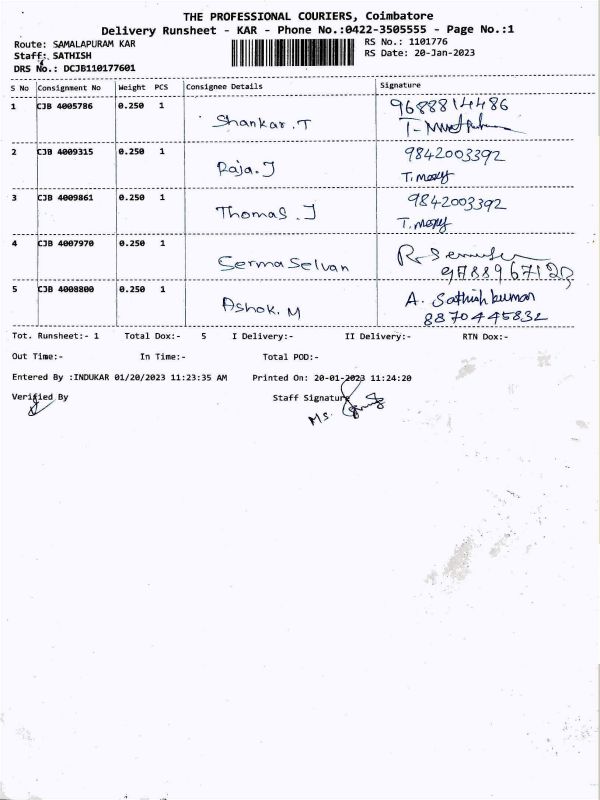 THE PROFESSIONAL COURIERS, Coimbatore
Delivery Runsheet - KAR - Phone No.:0422-3505555 - Page No.:1
Route: SAMALAPURAM KAR
RS No.: 1101776
Staff: SATHISH
RS Date: 20-Jan-2023
DRS No.: DCJB110177601
S No Consignment No Weight PCS Consignee Details Signature
1 CJB 4005786 0.250 1 Shankar.T 9688814486
2 CJB 4009315 0.250 1 Raja.J 9842003392
T.mary
3 CJB 4009861 0.250 1 Thomas.J 9842003392
T.mary
4 CJB 4007970 0.250 1 Serma Selvan
5 CJB 4008800 0.250 1 Ashok.M A. Sathish kumar
8870445832
Tot. Runsheet:- 1 Total Dox:- 5 I Delivery:- II Delivery:- RTN Dox:-
Out Time:- In Time:- Total POD:-
Entered By :INDUKAR 01/20/2023 11:23:35 AM Printed On: 20-01-2023 11:24:20
Verified By Staff Signature
MS.